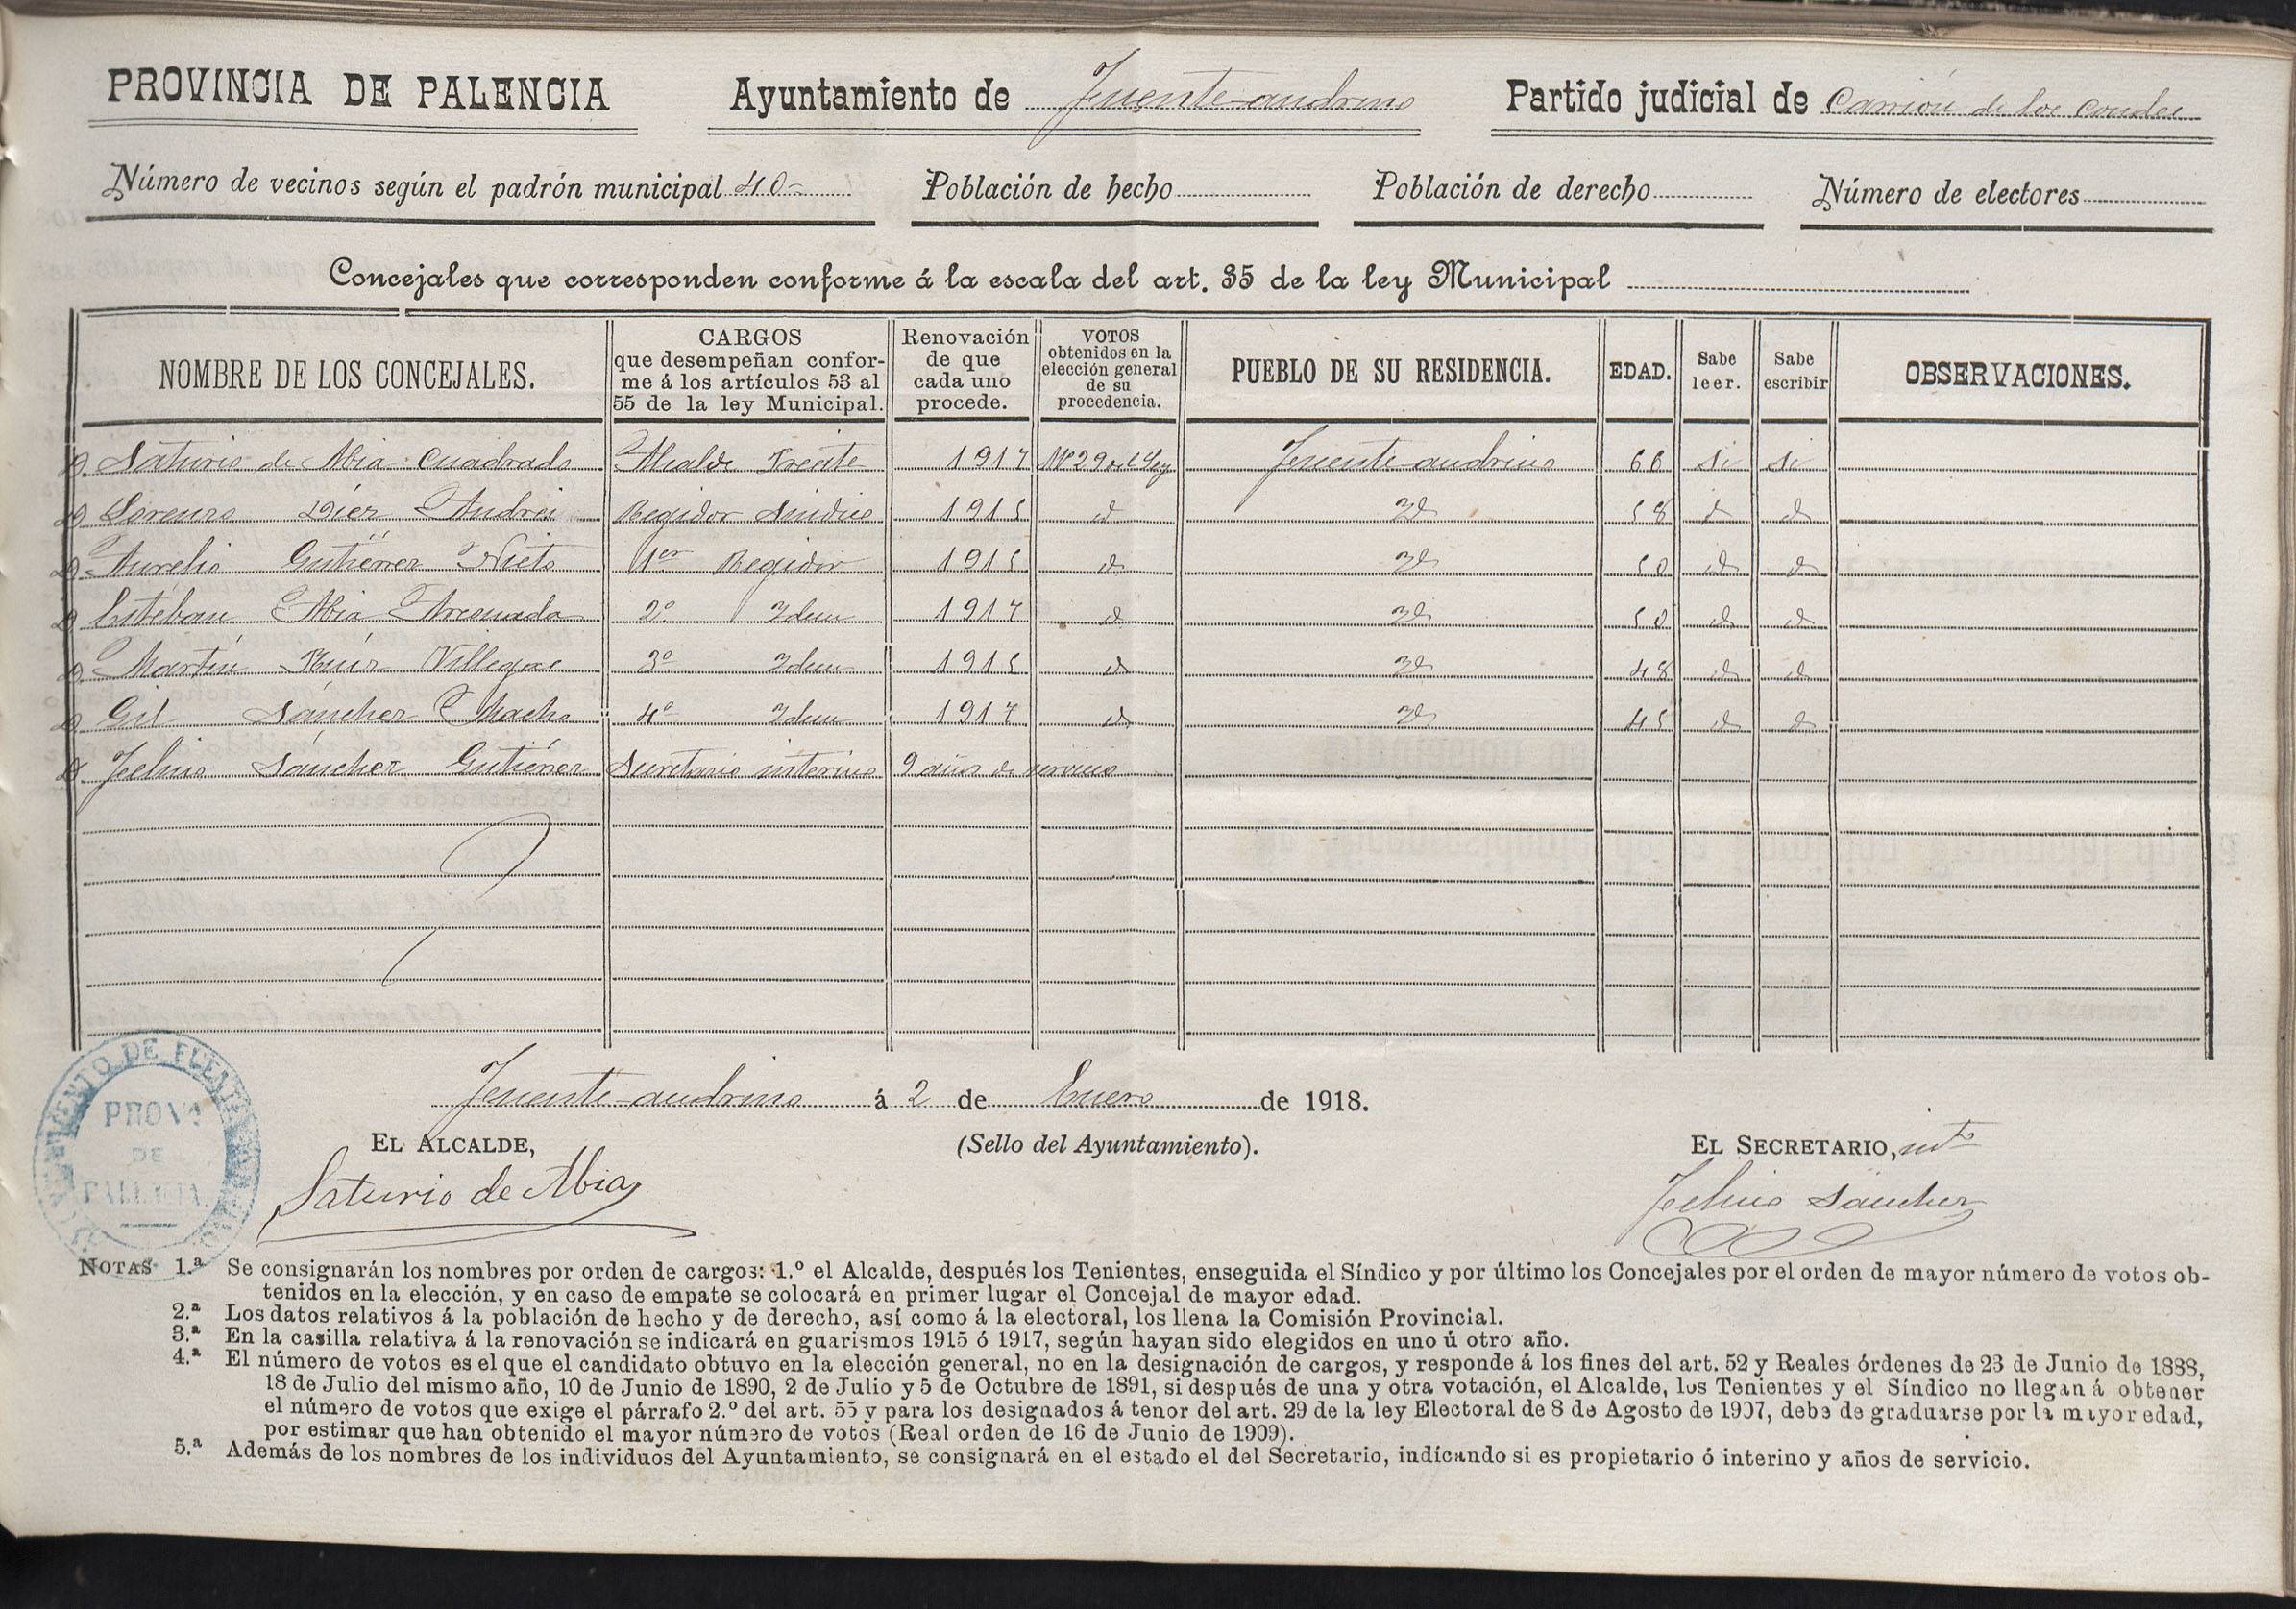 PROVINCIA DE PALENCIA Ayuntamiento de Fuente-andrino Partido judicial de Carrión de los Condes
Número de vecinos según el padrón municipal 40 Población de hecho Población de derecho Número de electores
Concejales que corresponden conforme á la escala del art. 35 de la ley Municipal
NOMBRE DE LOS CONCEJALES. CARGOS que desempeñan conforme á los artículos 53 al 55 de la ley Municipal. Renovación de que cada uno procede. VOTOS obtenidos en la elección general de su procedencia. PUEBLO DE SU RESIDENCIA. EDAD. Sabe leer. Sabe escribir OBSERVACIONES.
D. Saturio de Abia Cuadrado Alcalde 1917 29 Ley Fuente-andrino 66 si si
D. Lorenzo Diez Andrés Regidor Sindico 1915 id Id 58 id id
D. Aurelio Gutiérrez Nieto 1er Regidor 1915 id Id 50 id id
D. Esteban Abia Arconada 2º Idem 1917 id Id 50 id id
D. Martín Ruiz Villegas 3º Idem 1915 id Id 48 id id
D. Gil Sánchez Macho 4º Idem 1917 id Id 45 id id
D. Sánchez Gutiérrez Secretario interino 9 años de servicio
Fuente-andrino á 2 de Enero de 1918.
EL ALCALDE, (Sello del Ayuntamiento). EL SECRETARIO, intº
Saturio de Abia Sánchez
PROVª
DE
PALENCIA
NOTAS 1.ª Se consignarán los nombres por orden de cargos: 1.º el Alcalde, después los Tenientes, enseguida el Síndico y por último los Concejales por el orden de mayor número de votos ob-
tenidos en la elección, y en caso de empate se colocará en primer lugar el Concejal de mayor edad.
2.ª Los datos relativos á la población de hecho y de derecho, así como á la electoral, los llena la Comisión Provincial.
3.ª En la casilla relativa á la renovación se indicará en guarismos 1915 ó 1917, según hayan sido elegidos en uno ú otro año.
4.ª El número de votos es el que el candidato obtuvo en la elección general, no en la designación de cargos, y responde á los fines del art. 52 y Reales órdenes de 23 de Junio de 1888,
18 de Julio del mismo año, 10 de Junio de 1890, 2 de Julio y 5 de Octubre de 1891, si después de una y otra votación, el Alcalde, los Tenientes y el Síndico no llegan á obtener
el número de votos que exige el párrafo 2.º del art. 55 y para los designados á tenor del art. 29 de la ley Electoral de 8 de Agosto de 1907, debe de graduarse por la mayor edad,
por estimar que han obtenido el mayor número de votos (Real orden de 16 de Junio de 1909).
5.ª Además de los nombres de los individuos del Ayuntamiento, se consignará en el estado el del Secretario, indicando si es propietario ó interino y años de servicio.